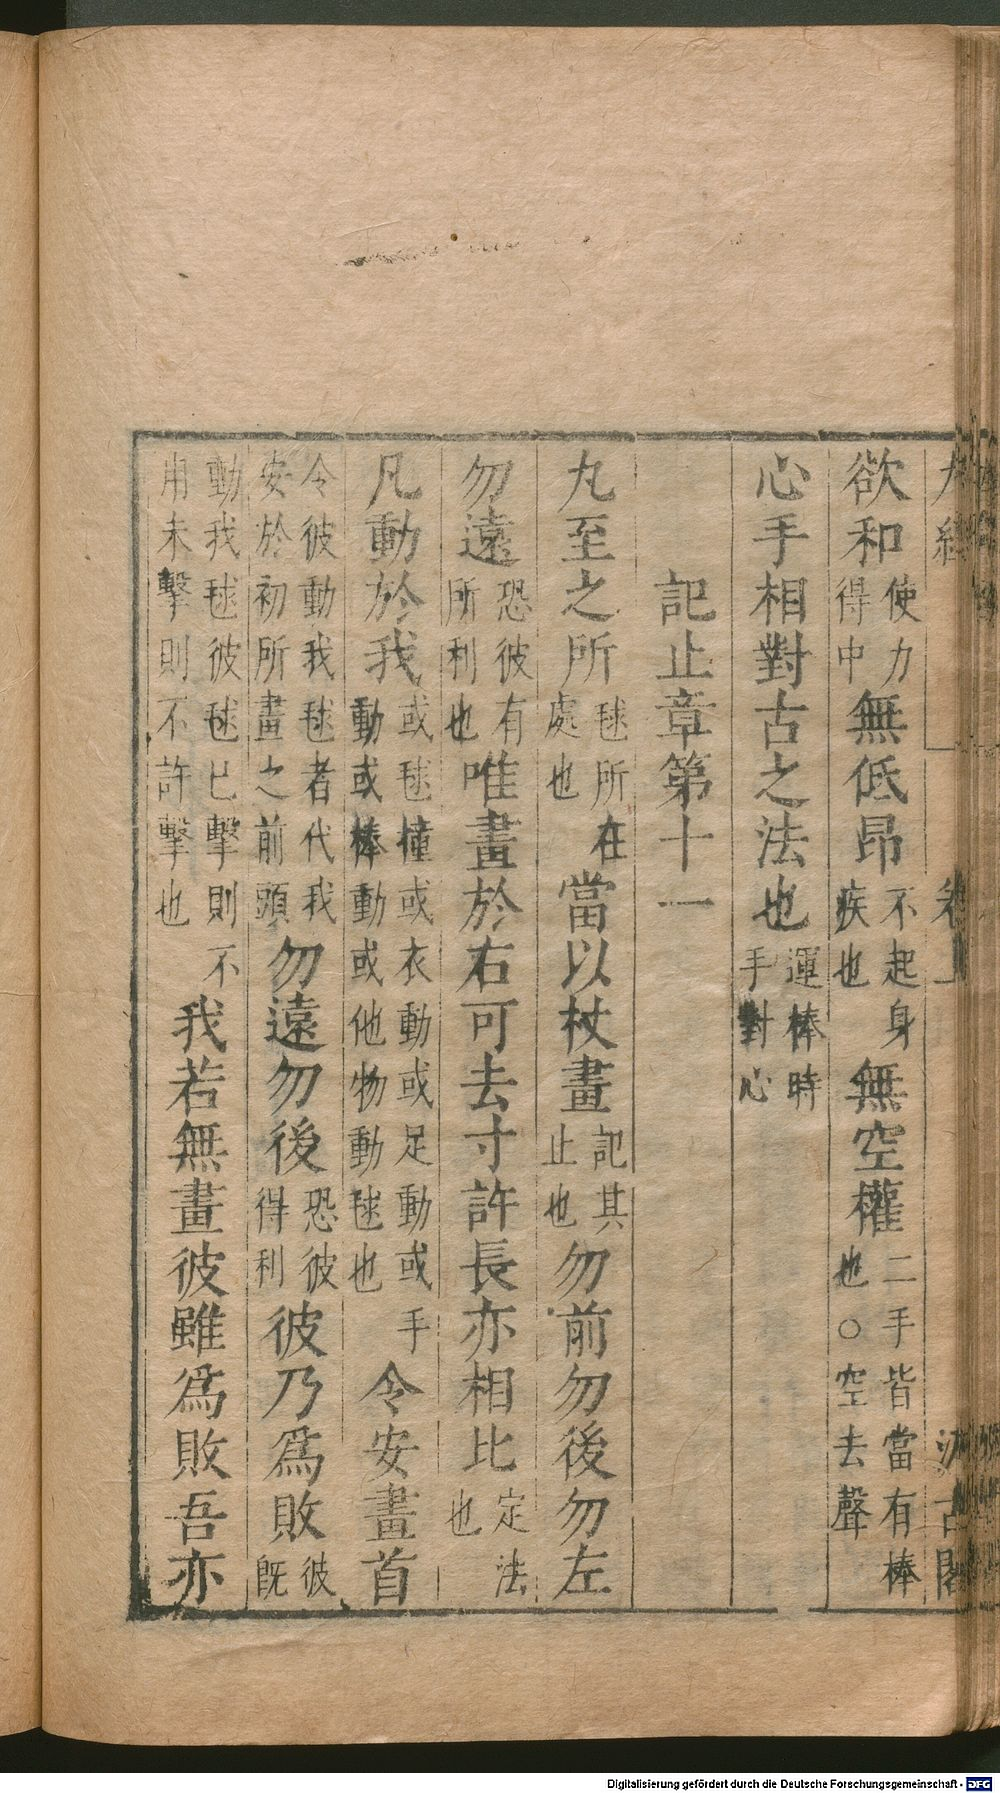 欲和使力得中無低昂不起身疾也無空權二手皆當有棒也○空去聲
心手相對古之法也運棒時手對心
記止章第十一
丸至之所毬所在處也當以杖畫記其止也勿前勿後勿左
勿遠恐彼有所利也唯畫於右可去寸許長亦相比定法也
凡動於我或毬撞或衣動或足動或手動或棒動或他物動毬也令安畫首
令彼動我毬者代我安於初所畫之前頭勿遠勿後恐彼得利彼乃爲敗彼既
動我毬彼毬已擊則不用未擊則不許擊也我若無畫彼雖爲敗吾亦
Digitalisierung gefördert durch die Deutsche Forschungsgemeinschaft - DFG